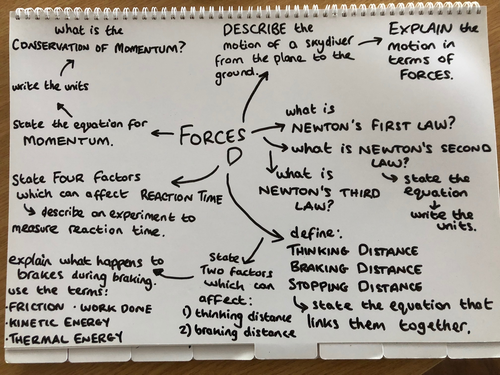 what is the
CONSERVATION OF MOMENTUM?
write the units
State the equation for
MOMENTUM.
DESCRIBE the
motion of a skydiver
from the plane to the
ground.
EXPLAIN the
motion in
terms of
FORCES.
FORCES
D
what is
NEWTON'S FIRST LAW?
what is NEWTON'S SECOND
LAW?
state the
equation
write the
units.
what is
NEWTON'S THIRD
LAW?
State FOUR Factors
which can affect REACTION TIME
describe an experiment to
measure reaction time.
define:
THINKING DISTANCE
BRAKING DISTANCE
STOPPING DISTANCE
state the equation that
links them together.
State
TWO factors
which can
affect:
1) thinking distance
2) braking distance
explain what happens to
brakes during braking.
use the terms:
· FRICTION · WORK DONE
· KINETIC ENERGY
· THERMAL ENERGY